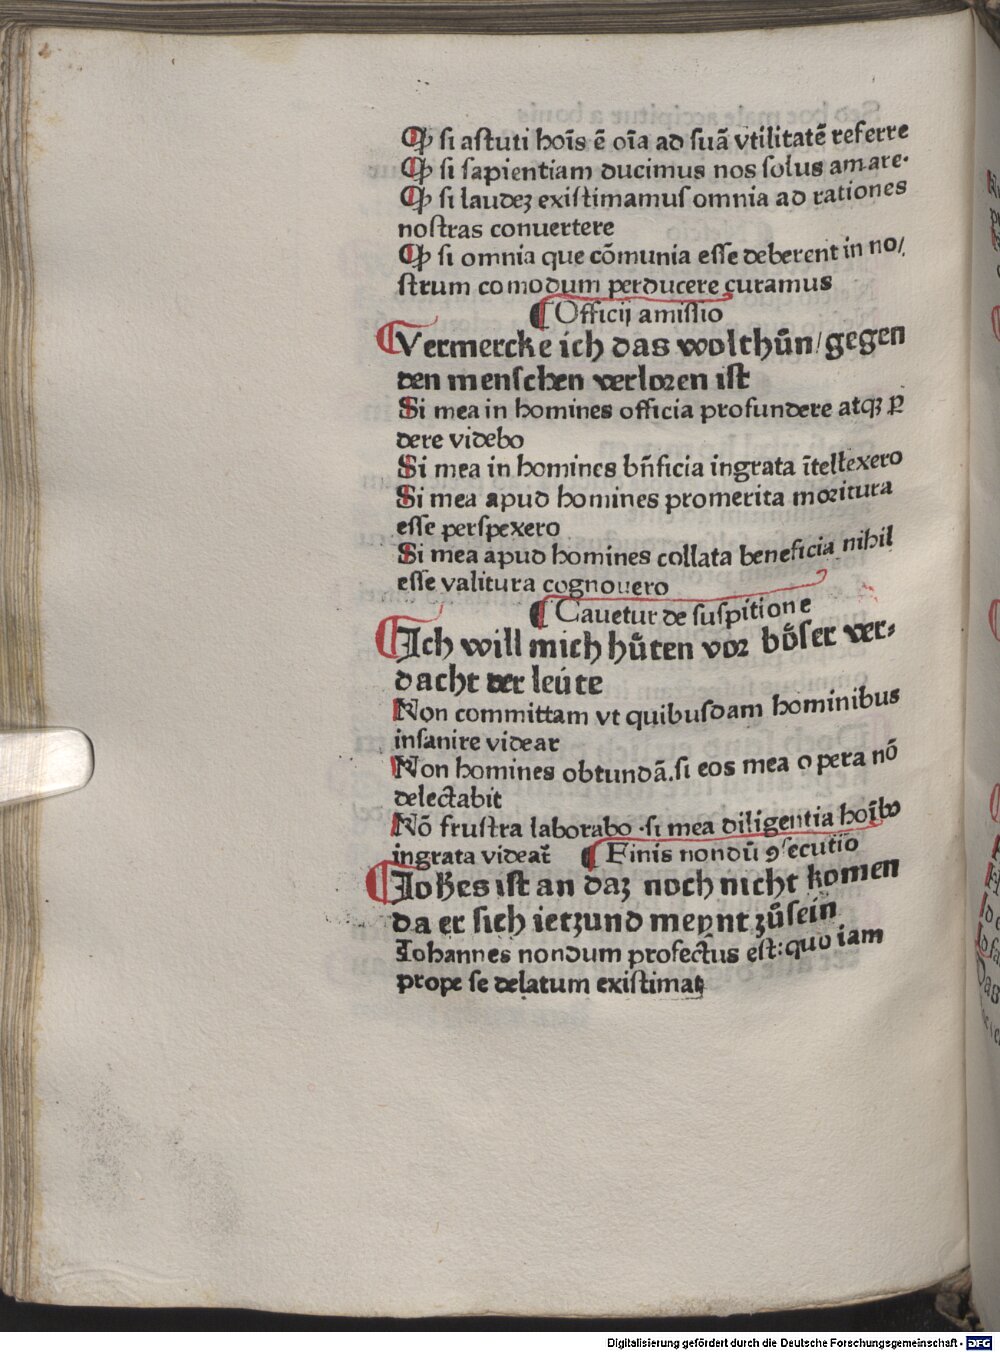 Ꝙ si astuti hoı̄s ē oı̄a ad suā vtilitatē referre
Ꝙ si sapientiam ducimus nos solus amare.
Ꝙ si laudeȝ existimamus omnia ad rationes
nostras conuertere
Ꝙ si omnia que cōmunia esse deberent in no/
strum comodum perducere curamus
¶ Officij amissio
¶ Vermercke ich das wolthůn/gegen
den menschen verloren ist
Si mea in homines officia profundere atqȝ ꝑ
dere videbo
Si mea in homines bn̄ficia ingrata ı̄tellexero
Si mea apud homines promerita moritura
esse perspexero
Si mea apud homines collata beneficia nihil
esse valitura cognouero
¶ Cauetur de suspitione
¶ Ich will mich hůten vor bőser ver⸗
dacht der leúte
Non committam vt quibusdam hominibus
insanire videar
Non homines obtundā.si eos mea opera nō
delectabit
Nō frustra laborabo .si mea diligentia hoı̄bꝰ
ingrata videat̄ ¶ Finis nondū ꝯsecutio
¶ Johēs ist an daȝ noch nicht komen
da er sich ietzund meynt zůsein
Johannes nondum profectus est: quo iam
prope se delatum existimat
Digitalisierung gefördert durch die Deutsche Forschungsgemeinschaft - DFG